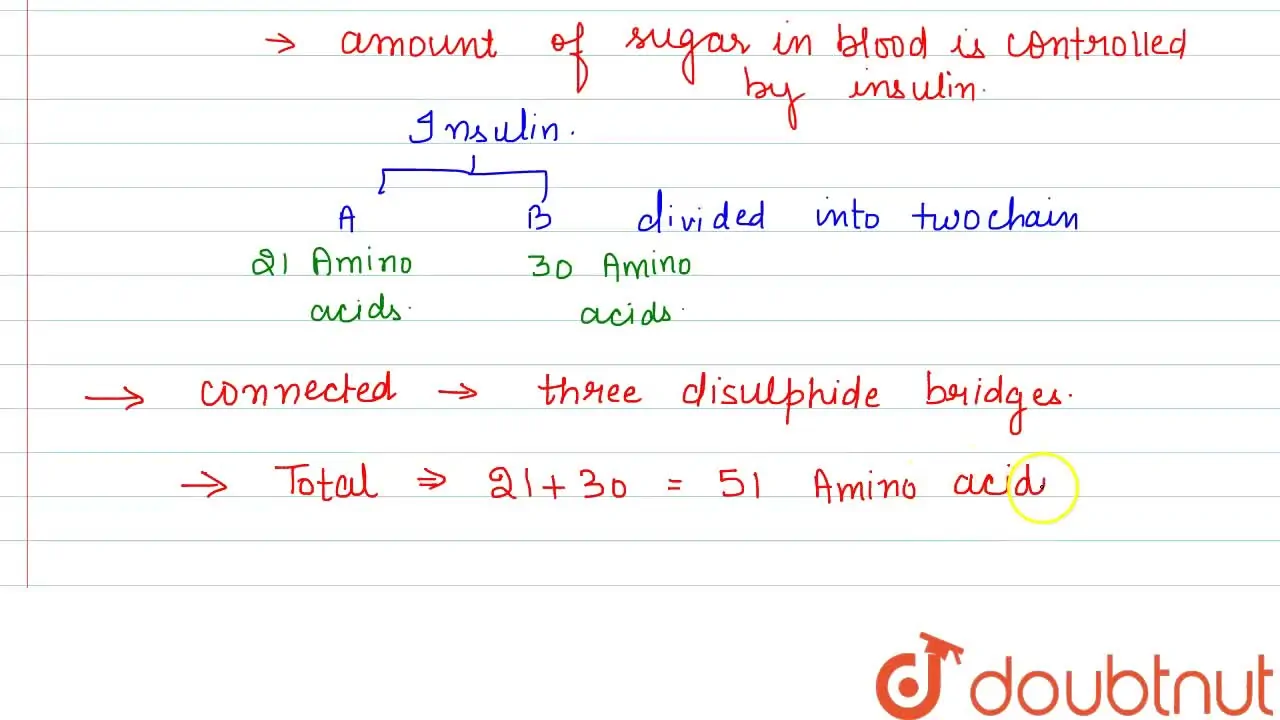 → amount of sugar in blood is controlled
by insulin.
Insulin.
A B divided into two chain
21 Amino 30 Amino
acids. acids.
→ connected → three disulphide bridges.
→ Total ⇒ 21 + 30 = 51 Amino acid
doubtnut